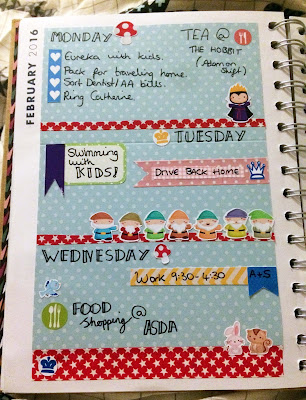 FEBRUARY 2016
MONDAY
Eureka with kids.
Pack for traveling home.
Sort Dentist/AA bills.
Ring Catherine.
TEA @
THE HOBBIT
(Adam on
Shift)
TUESDAY
Swimming
with
KIDS!
DRIVE BACK HOME
WEDNESDAY
WORK 9:30-4:30
A+S
FOOD
Shopping @
ASDA